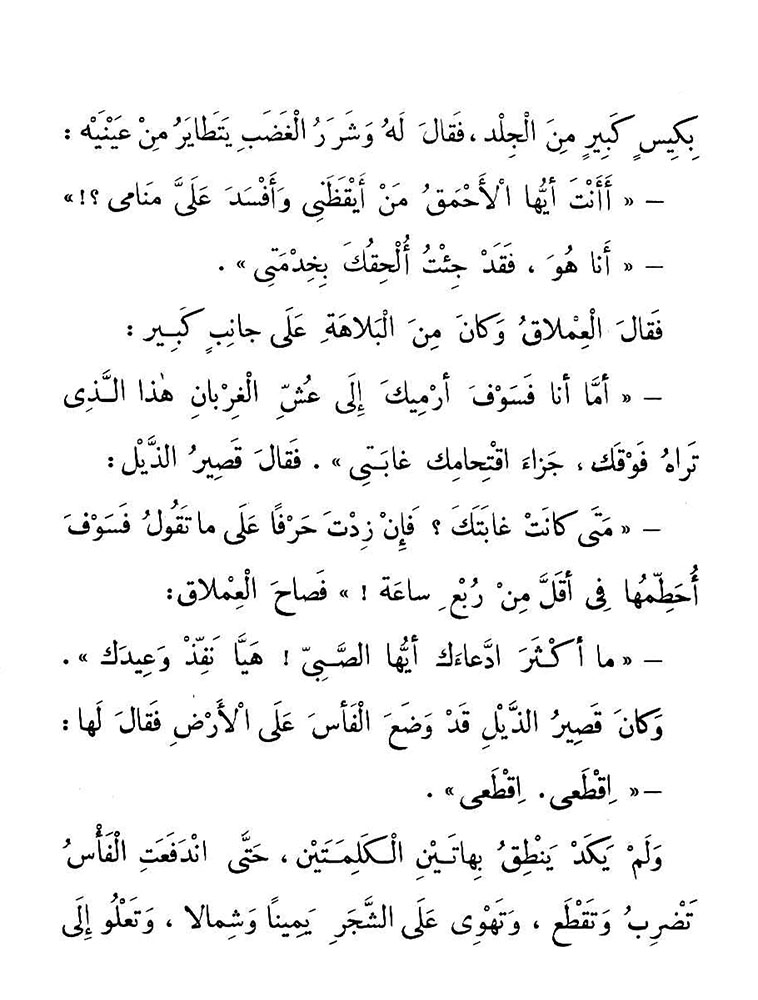 بِكِيسٍ كَبِيرٍ مِنَ الْجِلْد ، فَقالَ لَهُ وَشَرَرُ الْغَضَبِ يَتَطايَرُ مِنْ عَيْنَيْه :
— « أَأَنْتَ أيُّها الْأَحْمَقُ مَنْ أَيْقَظَنِى وَأَفْسَدَ عَلَىَّ مَنامى ؟! »
— « أَنا هُوَ ، فَقَدْ جِئْتُ أُلْحِقُكَ بِخِدْمَتِى » .
فَقالَ الْعِمْلاقُ وَكانَ مِنَ الْبَلاهَةِ عَلَى جانِبٍ كَبِير :
— « أمَّا أنا فَسَوْفَ أرْمِيكَ إلَى عُشِّ الْغِرْبانِ هٰذا الَّذِى
تَراهُ فَوْقَك ، جَزاءَ اقْتِحامِك غابَتِى » . فَقالَ قَصِيرُ الذَّيْل :
— « مَتَى كانَتْ غابَتَكَ ؟ فَإِنْ زِدْتَ حَرْفًا عَلَى ما تَقُولُ فَسَوْفَ
أُحَطِّمُها فِى أقَلَّ مِنْ رُبْعِ ساعَة ! » فَصاحَ الْعِمْلاق :
— « ما أكْثَرَ ادَّعاءَك أيُّها الصَّبِىّ ! هَيَّا نَفِّذْ وَعِيدَك » .
وَكانَ قَصِيرُ الذَّيْلِ قَدْ وَضَعَ الْفَأسَ عَلَى الْأَرْضِ فَقالَ لَها :
— « اِقْطَعى . اِقْطَعى » .
وَلَمْ يَكَدْ يَنْطِقُ بِهاتَيْنِ الْكَلِمَتَيْن ، حَتَّى انْدَفَعَتِ الْفَأْسُ
تَضْرِبُ وَتَقْطَع ، وَتَهْوِى عَلَى الشَّجَرِ يَمِينًا وَشِمالا ، وَتَعْلُو إلَى